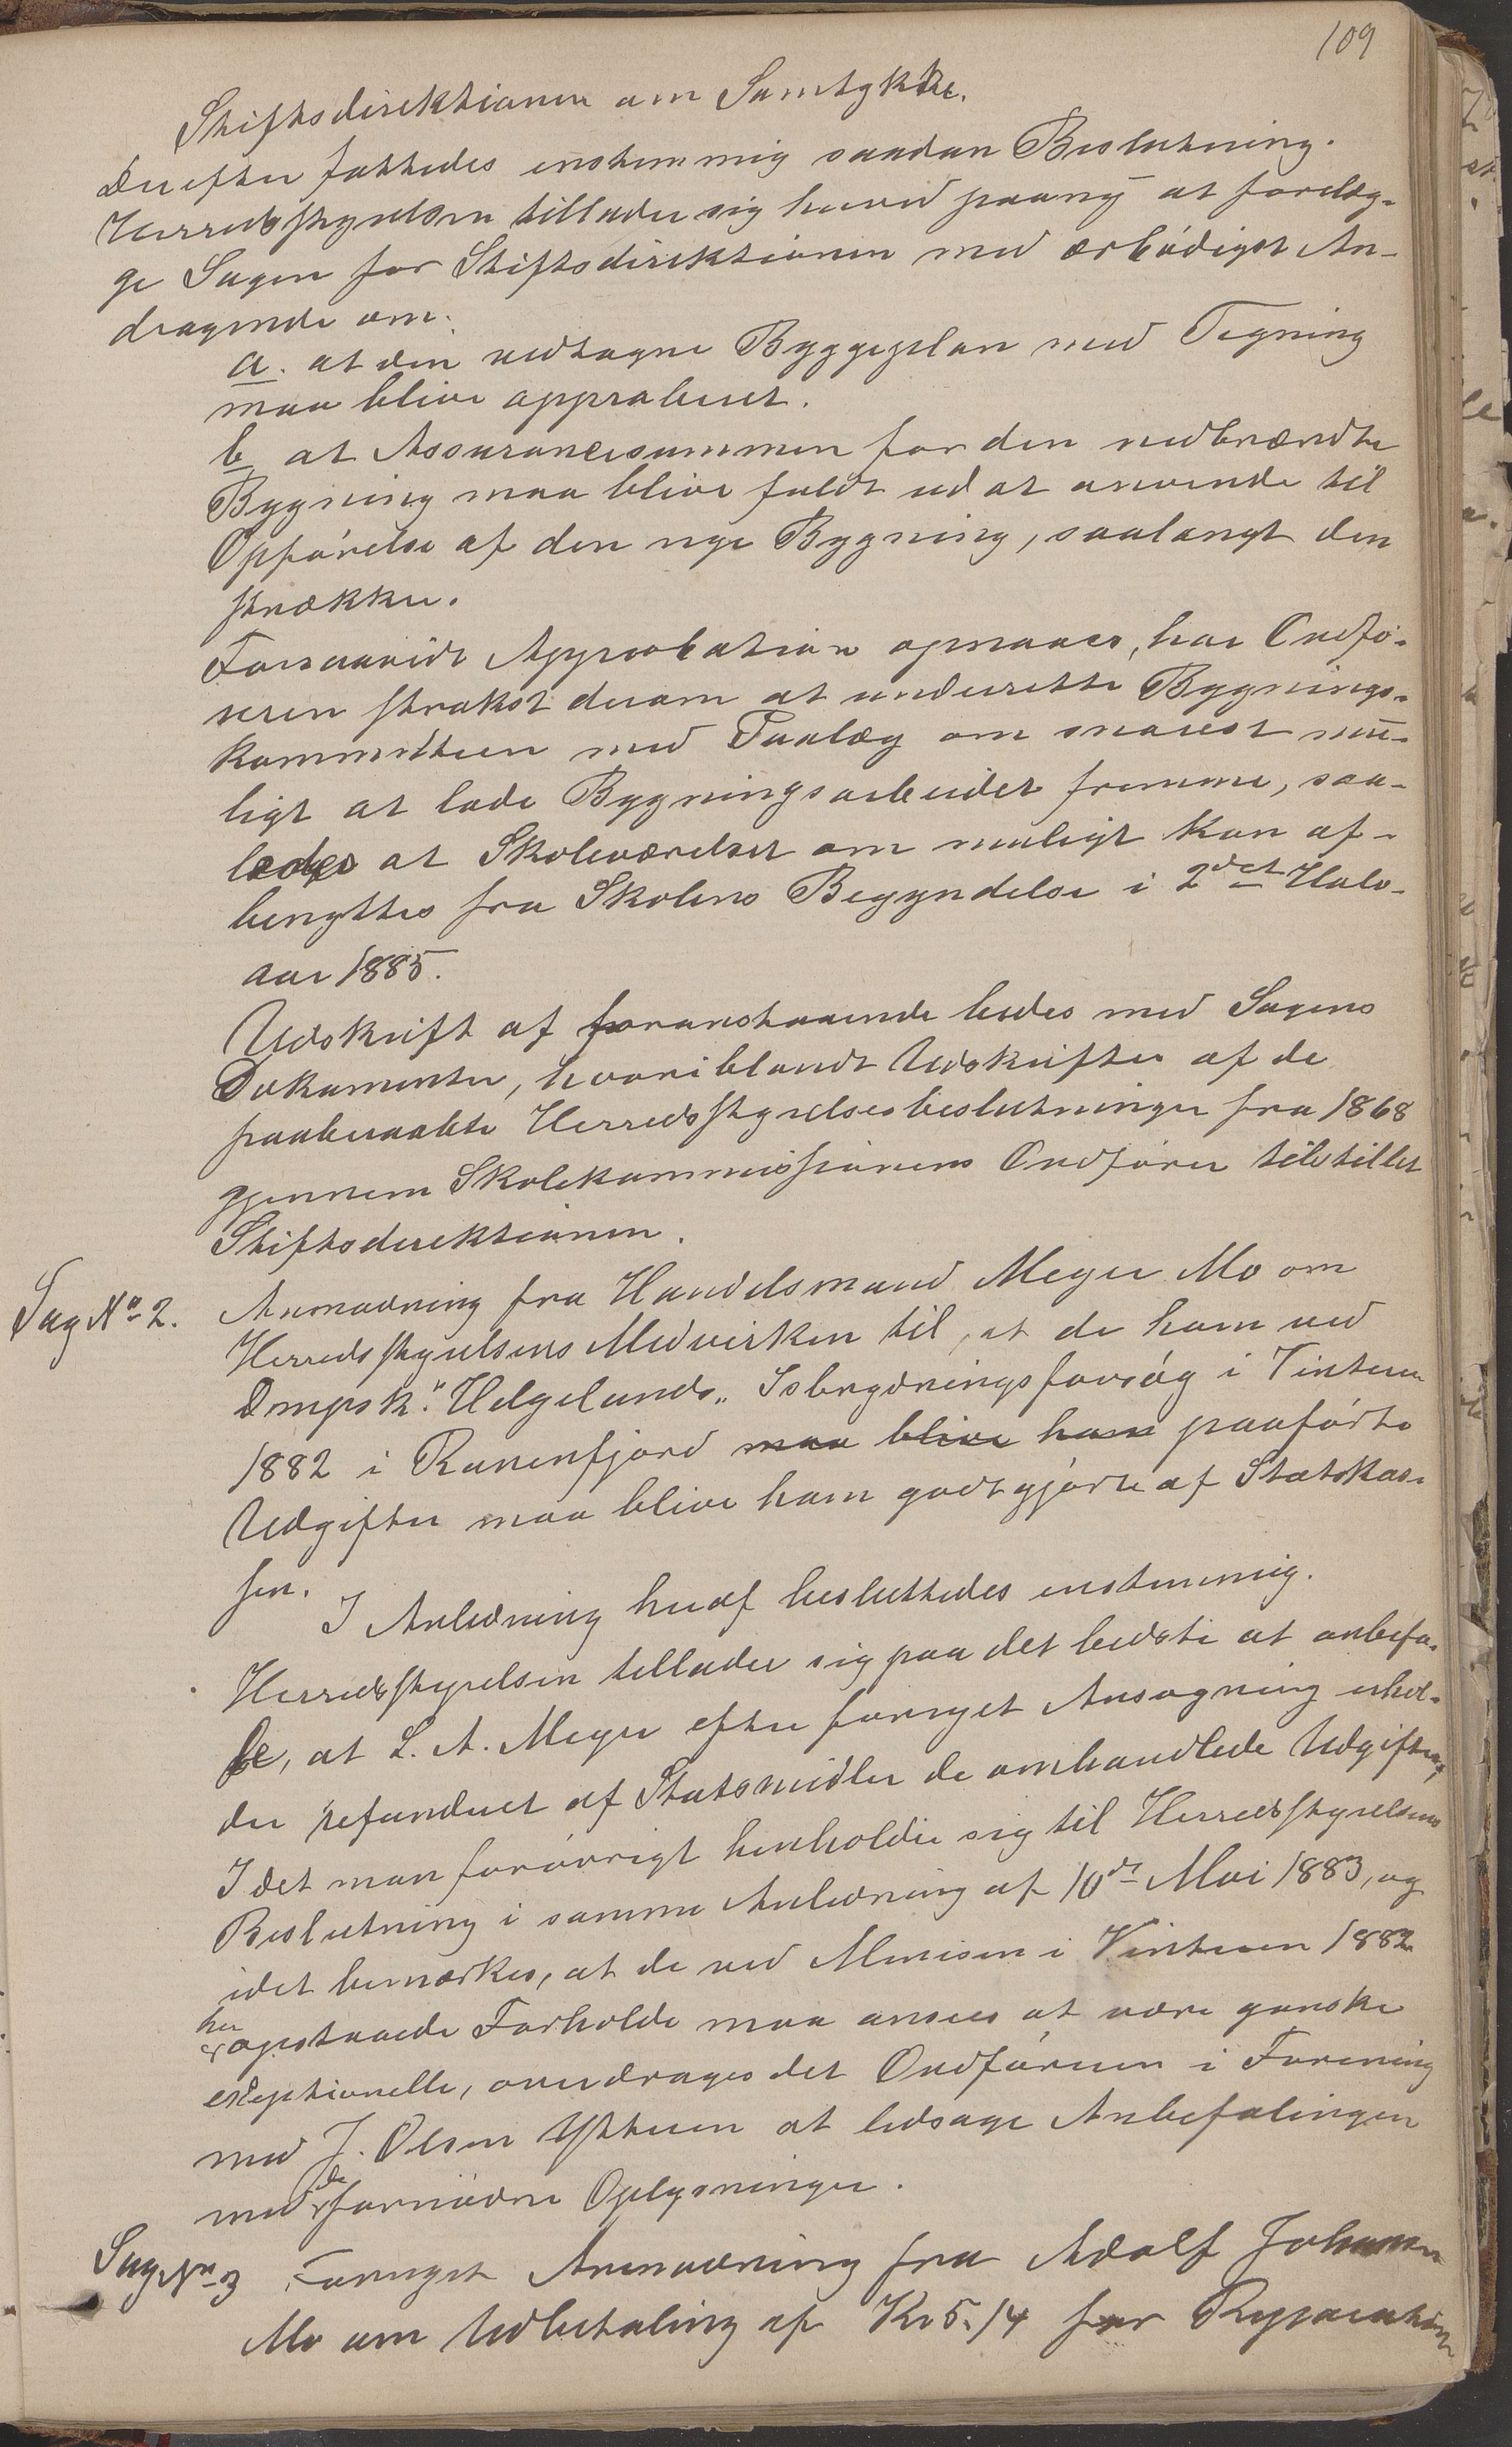 109
Stiftsdirektionen om Samtykke.
Derefter fattedes enstemmig saadan Beslutning.
Herredsstyrelsen tillader sig herved paany at forelæg-
ge Sagen for Stiftsdirektionen med ærbødigst An-
dragende om:
a. at den vedtagne Byggeplan med Tegning
maa blive approberet.
b at Assurancesummen for den nedbrændte
Bygning maa blive fuldt ud at anvende til
Opførelse af den nye Bygning, saalangt den
strækker.
Forsaavidt Approbation opnaaes, har Ordfø-
reren strakst derom at underrette Bygnings-
kommitteen med Paalæg om snarest mu-
ligt at lade Bygningsarbeidet fremme, saa-
ledes at Skoleværelset om muligt kan af-
benyttes fra Skolens Begyndelse i 2det Halv-
aar 1885.
Udskrift af foranstaaende bedes med Sagens
Dokumenter, hvoriblandt Udskrifter af de
paaberaabte Herredsstyrelsesbeslutninger fra 1868
gjennem Skolekommissionens Ordfører tilstillet
Stiftsdirektionen.
Sag No 2. Anmodning fra Handelsmand Meyer Mo om
Herredsstyrelsens Medvirken til, at de ham ved
Dmpsk. "Helgelands" Isbrydningsforsøg i Vinteren
1882 i Ranenfjord maa blive ham paaførte
Udgifter maa blive ham godtgjorte af Statskas-
sen.
I Anledning heraf besluttedes enstemmig.
Herredsstyrelsen tillader sig paa det bedste at anbefa-
le, at L. A. Meyer efter fornyet Ansøgning erhol-
der refunderet af Statsmidler de omhandlede Udgifter,
Idet man forøvrigt henholder sig til Herredsstyrelsens
Beslutning i samme Anledning af 10de Mai 1883, og
idet bemærkes, at de ved Menisen i Vinteren 1882
her
opstaaede Forholde maa ansees at være ganske
exeptionelle, overdrages det Ordføreren i Forening
med J. Olsen Ytteren at ledsage Anbefalingen
med de fornødne Oplysninger.
Sag No 3 Fornyet Anmodning fra Adolf Johansen
Mo om Udbetaling af Kr 5.14 for Reparation